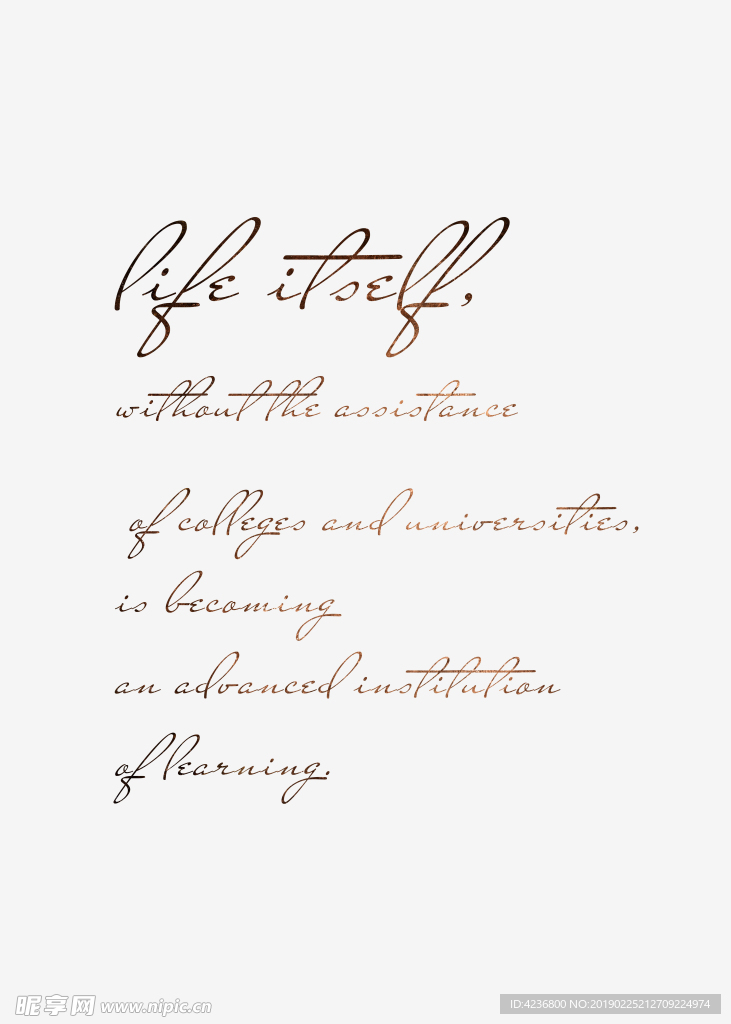 life itself,
without the assistance
of colleges and universities,
is becoming
an advanced institution
of learning.
昵享网 www.nipic.cn
ID:4236800 NO:20190225212709224974